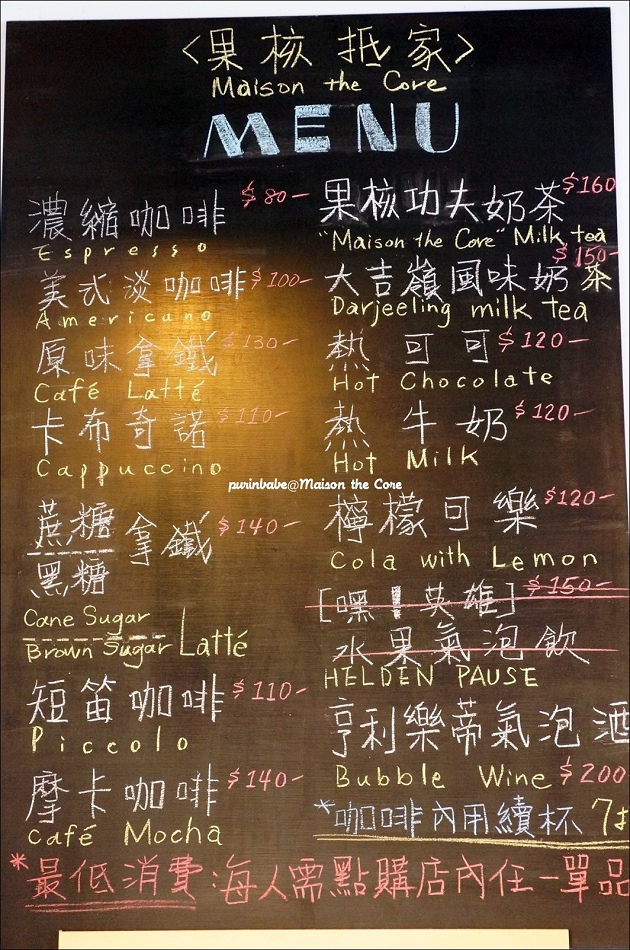 <果核抵家>
Maison the Core
MENU
濃縮咖啡 $80-
Espresso
美式淡咖啡 $100-
Americano
原味拿鐵 $130-
Café Latté
卡布奇諾 $110-
Cappuccino
蔗糖
黑糖
拿鐵 $140-
Cane Sugar
Brown Sugar
Latté
短笛咖啡 $110-
Piccolo
摩卡咖啡 $140-
Café Mocha
果核功夫奶茶 $160
"Maison the Core" Milk tea
大吉嶺風味奶茶 $150-
Darjeeling milk tea
熱可可 $120-
Hot Chocolate
熱牛奶 $120-
Hot Milk
purinbabe@Maison the Core
檸檬可樂 $120-
Cola with Lemon
[嘿!英雄] $150-
水果氣泡飲
HELDEN PAUSE
亨利樂蒂氣泡酒
Bubble Wine $200
*咖啡內用續杯 7
*最低消費:海人需點購店內任一單品